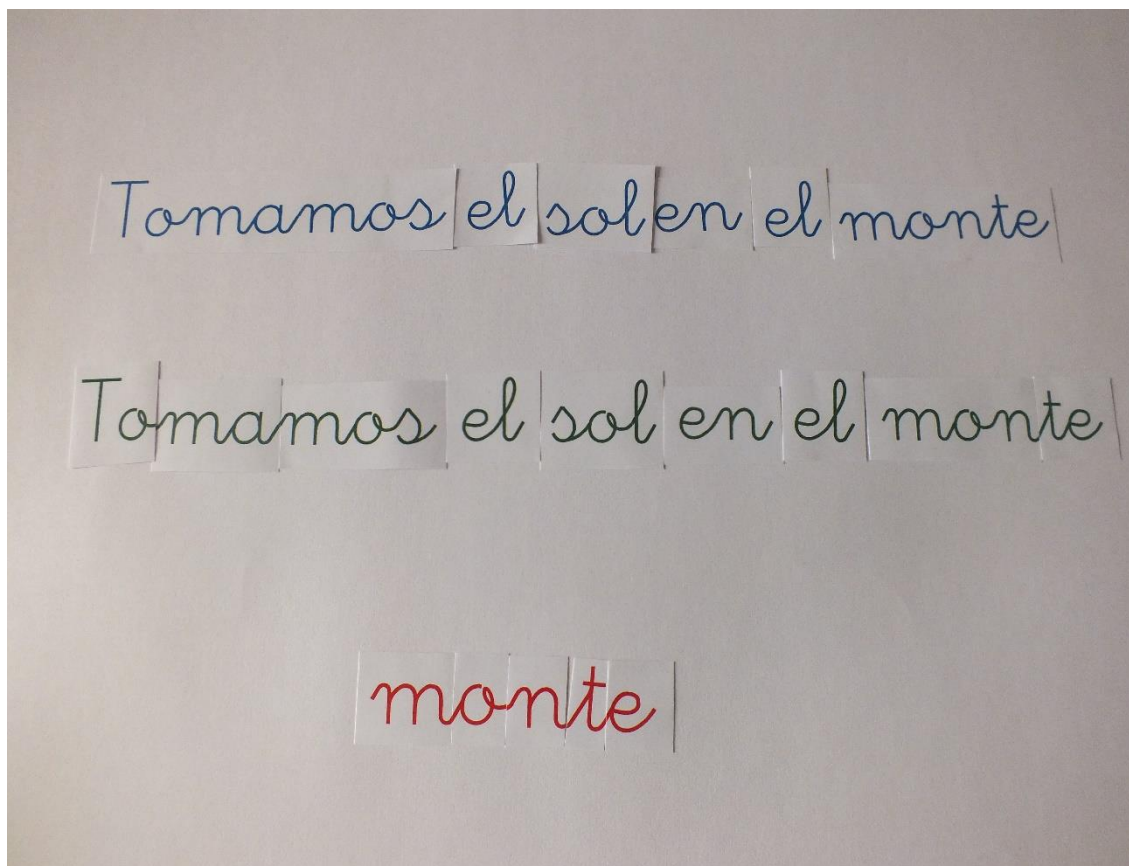 Tomamos el sol en el monte
Tomamos el sol en el monte
monte